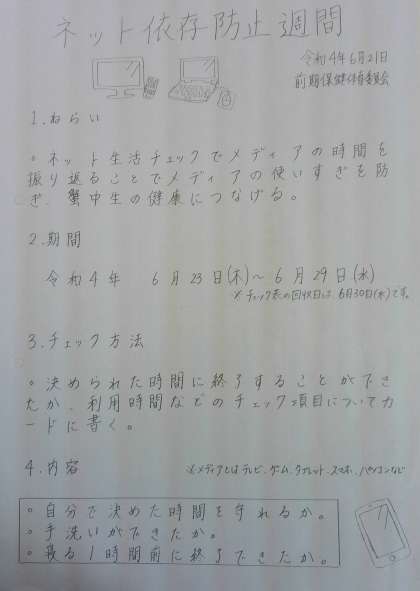 ネット依存防止週間
令和4年6月21日
前期保健体育委員会
1.ねらい
○ネット生活チェックでメディアの時間を
振り返ることでメディアの使いすぎを防
ぎ、蟹中生の健康につなげる。
2.期間
令和4年 6月23日(木)~6月29日(水)
※チェック表の回収日は、6月30日(木)です。
3.チェック方法
○決められた時間に終了することができ
たか、利用時間などのチェック項目についてカ
ードに書く。
4.内容
※メディアとはテレビ、ゲーム、タブレット、スマホ、パソコンなど
○自分で決めた時間を守れるか。
○手洗いができたか。
○寝る1時間前に終了できたか。